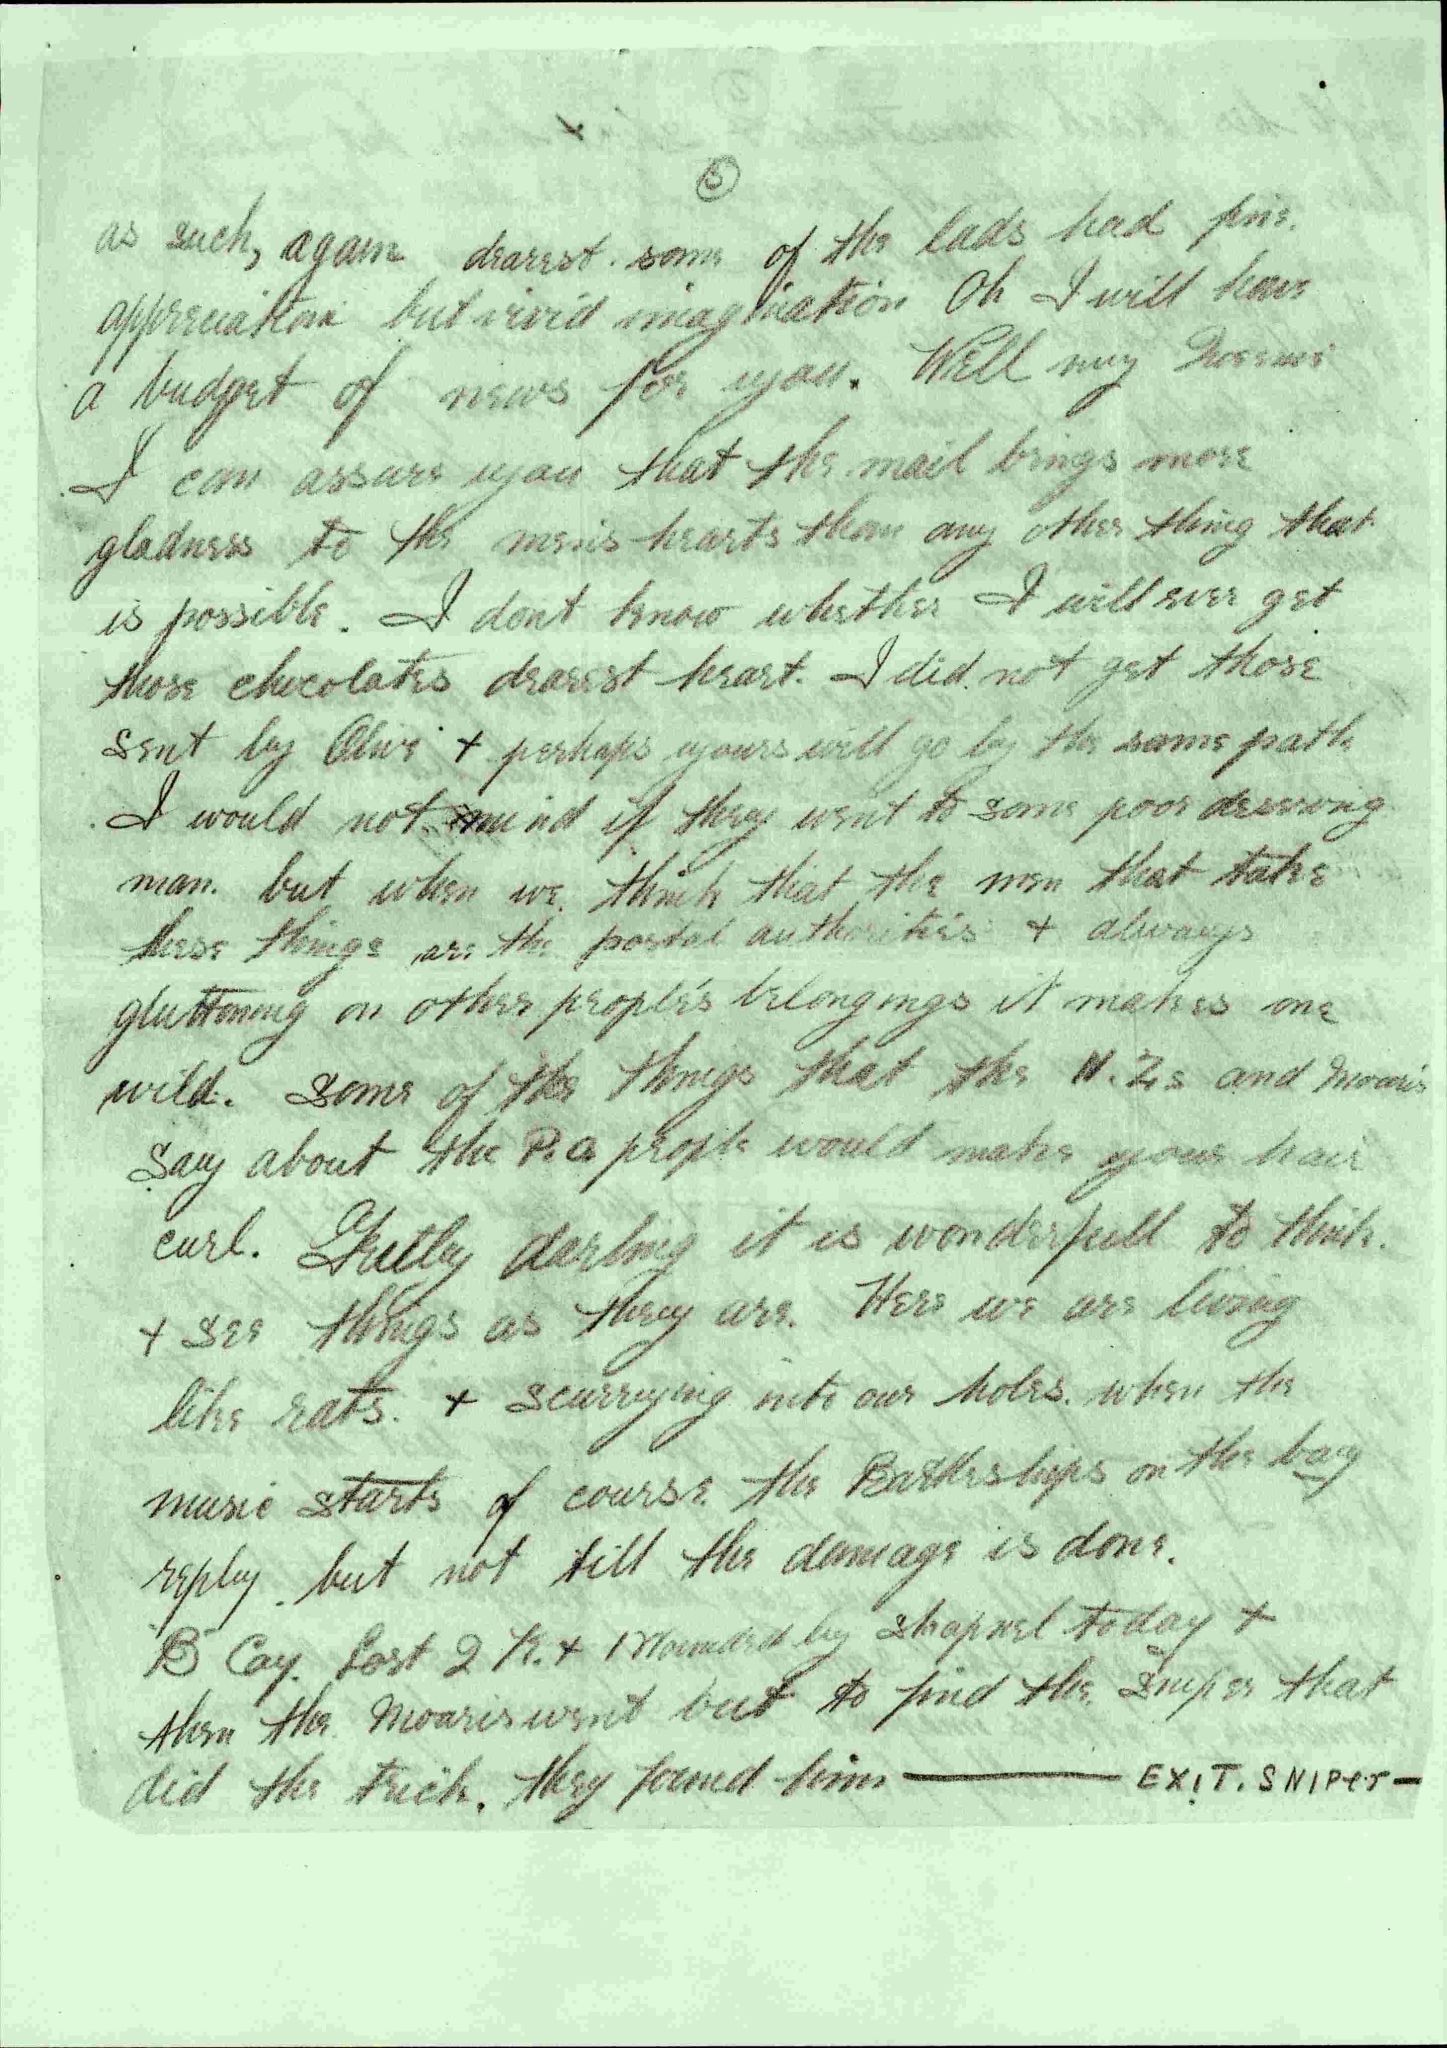 5
as such, again dearest. some of the lads had fine.
appreciation but vivid imagination Oh I will have
a budget of news for you. Well my
I can assure you that the mail brings more
gladness to the men's hearts than any other thing that
is possible. I dont know whether I will ever get
those chocolates dearest heart. I did. not get those
sent by Olive + perhaps yours will go by the same path
I would not mind if they went to some poor deserving
man. but when we. think that the men that take
these things are the postal authorities + always
gluttoning on other people's belongings it makes one
wild. Some of the things that the N.Zs and Moaris
say about the P.O. people would make your hair
curl. darling it is wonderfull to think.
+ see things as they are. Here we are living
like rats. + scurrying into our holes. when the
music starts of course. the Battleships on the bay
reply. but not till the damage is done.
B Coy. Lost 2 K. + 1 Wounded by shapnel today +
then the Moaris went out to find the Sniper that
did the trick. they found him — EXIT. SNIPer —